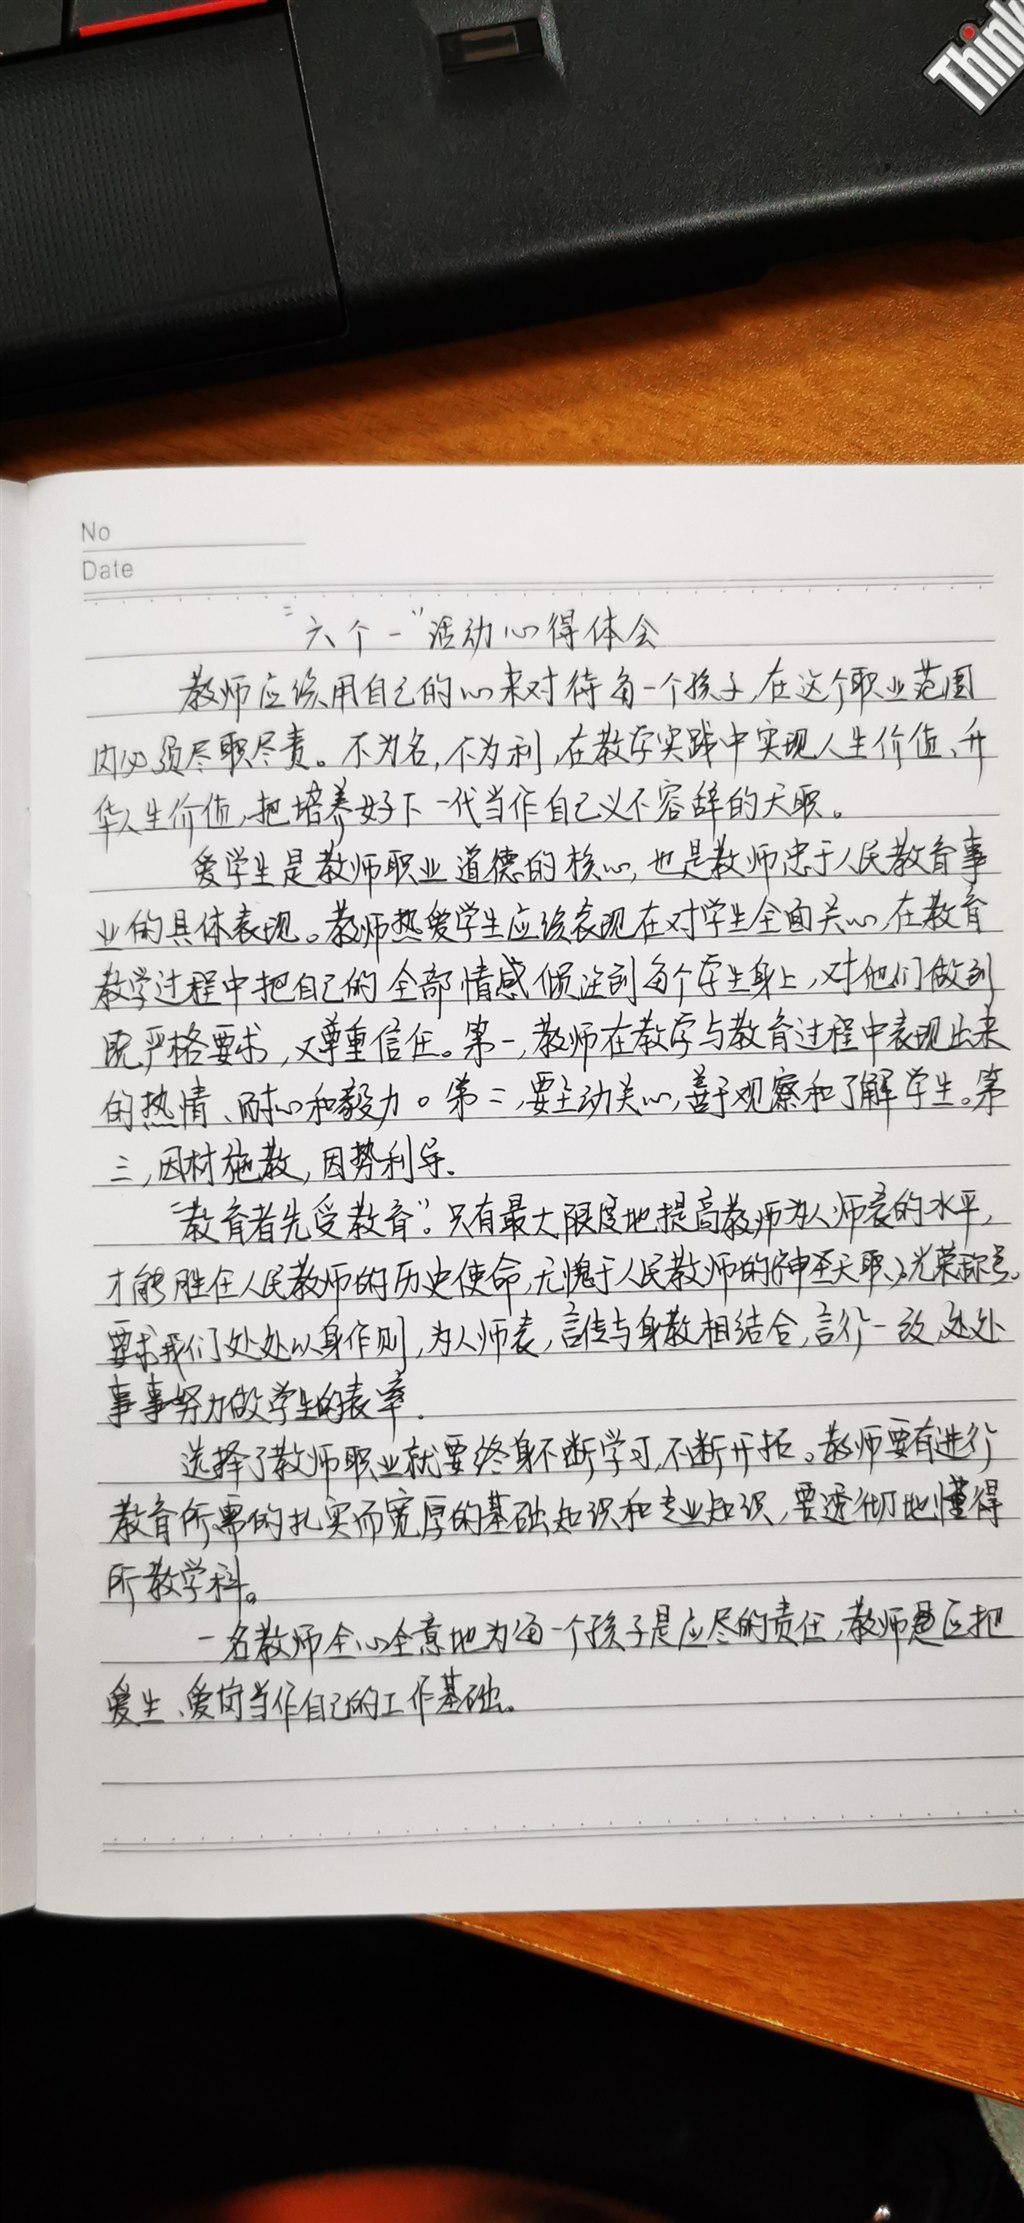 Think
No
Date
"六个一"活动心得体会
教师应该用自己的心来对待每一个孩子,在这个职业范围
内必须尽职尽责。不为名,不为利,在教学实践中实现人生价值、升
华人生价值,把培养好下一代当作自己义不容辞的天职。
爱学生是教师职业道德的核心,也是教师忠于人民教育事
业的具体表现。教师热爱学生应该表现在对学生全面关心,在教育
教学过程中把自己的全部情感倾注到每个学生身上,对他们做到
既严格要求,又尊重信任。第一,教师在教学与教育过程中表现出来
的热情、耐心和毅力。第二,要主动关心,善于观察和了解学生。第
三,因材施教,因势利导.
"教育者先受教育"。只有最大限度地提高教师为人师表的水平,
才能胜任人民教师的历史使命,无愧于人民教师的神圣天职、光荣称号。
要求我们处处以身作则,为人师表,言传与身教相结合,言行一致,处处
事事努力做学生的表率.
选择了教师职业就要终身不断学习,不断开拓。教师要有进行
教育所需的扎实而宽厚的基础知识和专业知识,要透彻地懂得
所教学科。
一名教师全心全意地为每一个孩子是应尽的责任,教师应把
爱生、爱岗当作自己的工作基础。